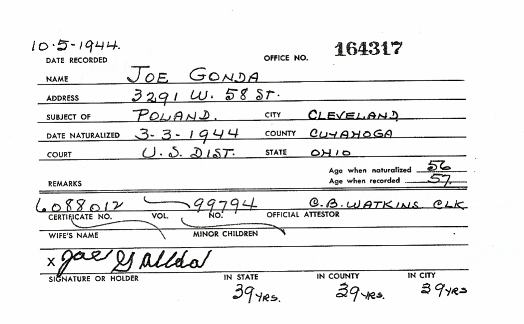 10-5-1944.
DATE RECORDED OFFICE NO. 164317
NAME JOE GONDA
ADDRESS 3291 W. 58 ST.
SUBJECT OF POLAND. CITY CLEVELAND
DATE NATURALIZED 3-3-1944 COUNTY CUYAHOGA
COURT U.S. DIST. STATE OHIO
Age when naturalized 56
REMARKS Age when recorded 57.
6088012 99794 C.B. WATKINS CLK
CERTIFICATE NO. VOL. NO. OFFICIAL ATTESTOR
WIFE'S NAME MINOR CHILDREN
X Joe
SIGNATURE OR HOLDER IN STATE IN COUNTY IN CITY
39 YRS. 39 YRS. 39 YRS